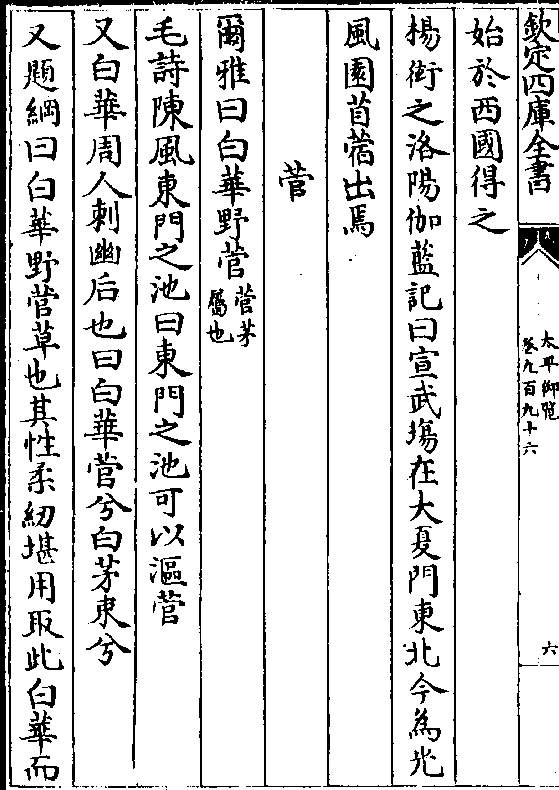 欽定四庫全書
太平御覽
卷九百九十六
六
始於西國得之
楊衒之洛陽伽藍記曰宣武塲在大夏門東北今為光
風園苜蓿出焉
菅
爾雅曰白華野菅菅茅屬也
毛詩陳風東門之池曰東門之池可以漚菅
又白華周人刺幽后也曰白華菅兮白茅束兮
又題綱曰白華野菅草也其性柔紉堪用取此白華而